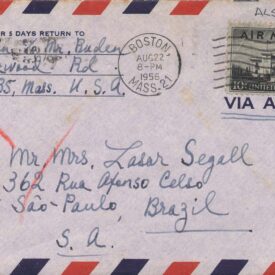 ALS
R 5 DAYS RETURN TO
Mr. Buden
Wood Rd
35, Mass. U.S.A.
BOSTON
AUG 22
8-PM
1956
MASS. 21
AIR M
10¢ UNITED
VIA A
Mr. Mrs. Lasar Segall
362 Rua Afonso Celso
São-Paulo, Brazil
S. A.